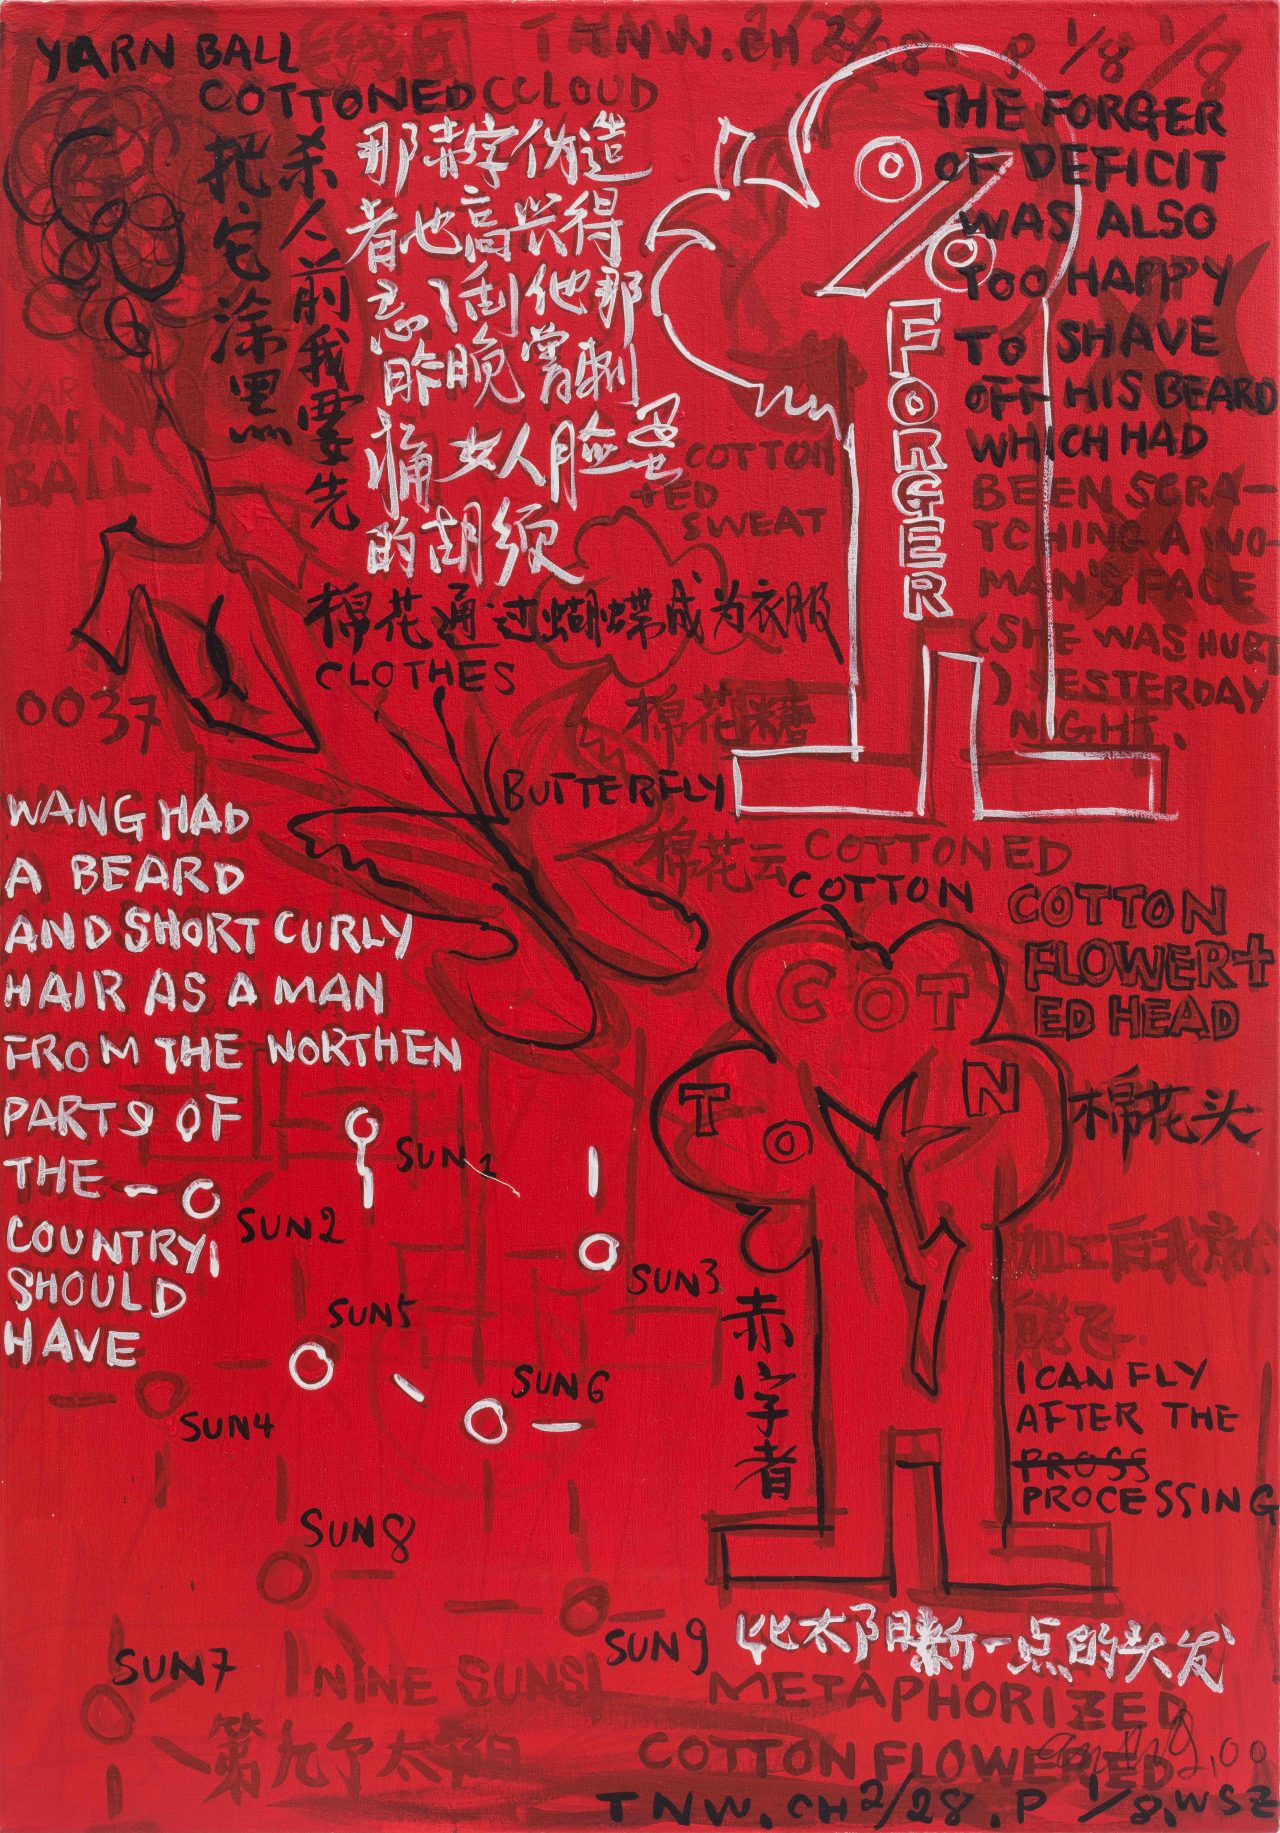 YARN BALL
毛线团
THNW. CH 2/28. P 1/8 1/8
COTTONED CCLOUD
杀人前我要先
把它涂黑
那赤字伪造
者也高兴得
忘了刮他那
昨晚曾刺
痛女人脸蛋
的胡须
THE FORGER
OF DEFICIT
WAS ALSO
TOO HAPPY
TO SHAVE
OFF HIS BEARD
WHICH HAD
BEEN SCRA-
TCHING A WO-
MAN'S FACE
(SHE WAS HURT
) YESTERDAY
NIGHT.
%
FORGER
YARN
YARN
BALL
COTTON
+ED
SWEAT
棉花通过蝴蝶成为衣服
CLOTHES
0037
棉花糖
BUTTERFLY
棉花云
COTTONED
COTTON
COTTON
FLOWER+
ED HEAD
棉花头
COT
TO N
WANG HAD
A BEARD
AND SHORT CURLY
HAIR AS A MAN
FROM THE NORTHEN
PARTS OF
THE
COUNTRY,
SHOULD
HAVE
SUN 1
SUN2
SUN3
SUN5
SUN6
SUN4
SUN8
SUN7
SUN9
加工后我就
能飞.
赤字者
I CAN FLY
AFTER THE
PROSS
PROCESSING
比太阳新一点的头发
NINE SUNS
METAPHORIZED
第九个太阳
COTTON FLOWERED
TNW. CH 2/28. P 1/8. WSZ